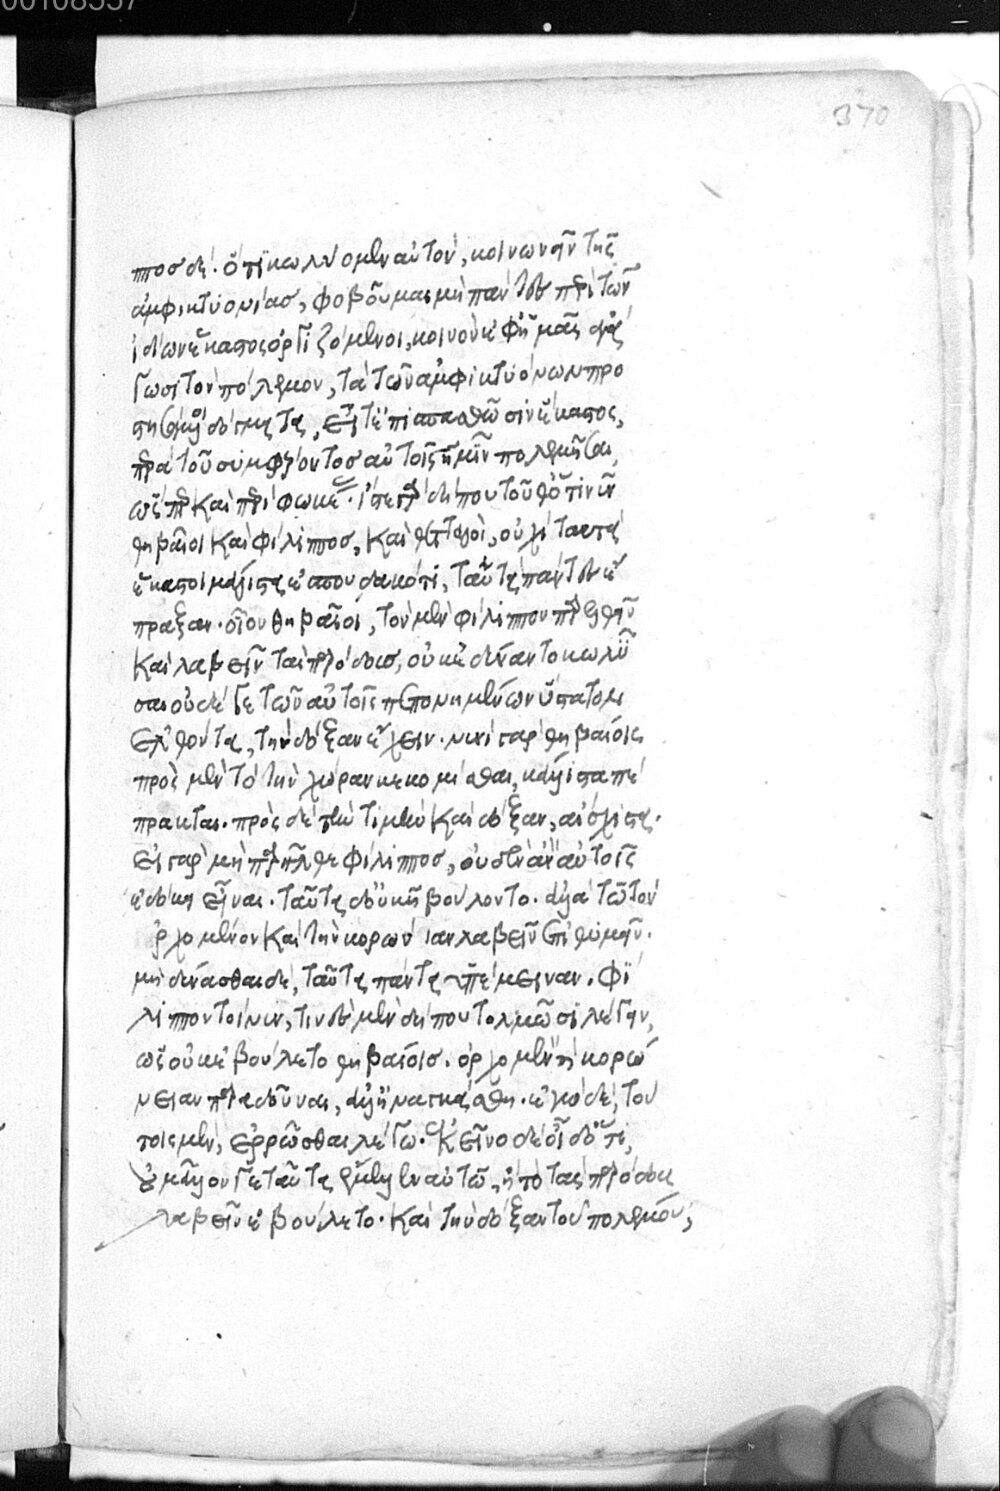 00108557
370
ππος δέ· ὅτι κωλύομεν αὐτὸν, κοινωνεῖν τῆς
ἀμφικτυονίας, φοβοῦμαι μὴ πάντες περὶ τῶν
ἰδίων ἕκαστος ὀργιζόμενοι, κοινὸν ἐφ' ἡμᾶς ἀγά
γωσι τὸν πόλεμον, τὰ τῶν ἀμφικτυόνων προ
στησάμενοι δόγματα, εἶτ' ἐπισπασθῶσιν ἕκαστος,
πέρα τοῦ συμφέροντος αὐτοῖς ἡμῖν πολεμῆσαι
ὥσπερ καὶ περὶ φωκέας· ἴστε γὰρ δήπου τοῦθ' ὅτι νῦν
θηβαῖοι καὶ φίλιππος, καὶ θετταλοὶ, οὐχὶ ταυτὰ
ἕκαστοι μάλιστα ἐσπουδακότες, ταῦτα πάντες ἔ
πραξαν· οἷον θηβαῖοι, τὸν μὲν φίλιππον παρελθεῖν
καὶ λαβεῖν τὰς παρόδους, οὐκ ἐδύναντο κωλῦ
σαι οὐδέ γε τῶν αὐτοῖς πεπονημένων ὕστατον
ἐλθόντα, τὴν δόξαν ἔχειν· νυνὶ γὰρ θηβαίοις
πρὸς μὲν τὸ τὴν χώραν κεκομίσθαι, κάλλιστα πέ
πρακται· πρὸς δὲ τιμὴν καὶ δόξαν, αἴσχιστα·
εἰ γὰρ μὴ παρῆλθε φίλιππος, οὐδὲν ἂν αὐτοῖς
ἐδόκει εἶναι· ταῦτα δ' οὐκ ἠβούλοντο· ἀλλὰ τῷ τὸν
ὀρχομενὸν καὶ τὴν κορώνειαν λαβεῖν ἐπιθυμεῖν·
μὴ δύνασθαι δέ, ταῦτα πάντα ὑπέμειναν· φί
λιππον τοίνυν, τινὲς μὲν δήπου τολμῶσι λέγειν,
ὡς οὐκ ἐβούλετο θηβαίοις· ὀρχομενὸν ἢ κορώ
νειαν παραδοῦναι, ἀλλ' ἠναγκάσθη· ἐγὼ δέ, τού
τοις μὲν, ἐρρῶσθαι λέγω· κεῖνο δὲ οἶδ' ὅτι,
οὐ μᾶλλόν γε ταῦτα ἔμελεν αὐτῷ, ἢ τὰς παρόδους
λαβεῖν ἐβούλετο· καὶ τὴν δόξαν τοῦ πολέμου,